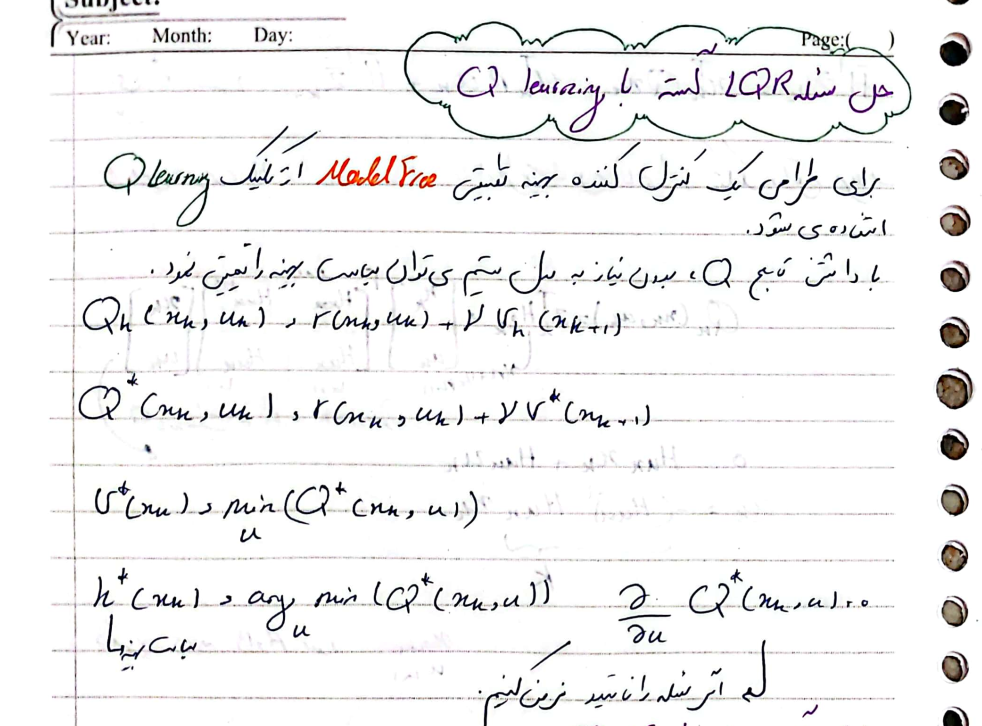 Subject:
Year: Month: Day: Page:( )
حل مسئله LQR گسسته با Q learning
برای طراحی یک کنترل کننده بهینه تطبیقی Model Free از تکنیک Q learning
استفاده می شود.
با داشتن تابع Q، بدون نیاز به مدل سیستم می توان سیاست بهینه را تعیین نمود.
Qₕ(xₖ, uₖ) = r(xₖ, uₖ) + γ Vₕ(xₖ₊₁)
Q*(xₖ, uₖ) = r(xₖ, uₖ) + γ V*(xₖ₊₁)
V*(xₖ) = min_u (Q*(xₖ, u))
h*(xₖ) = arg min_u (Q*(xₖ, u)) ∂/∂u Q*(xₖ, u) = 0
سیاست بهینه ما
اگر مسئله را نامقید فرض کنیم.